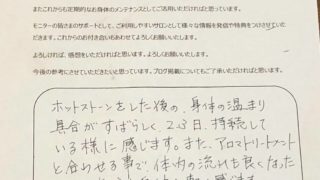 またこれからも定期的なお身体のメンテナンスとしてご活用いただければと思っています。
モニターの皆さまのサポートとして、ご利用しやすいサロンとして様々な情報を発信や特典をつけさせていい
だきます。これからのお付き合いもあわせてよろしくお願いいたします。
よろしければ、感想をいただければと思います。よろしくお願いいたします。
今後の参考にさせていただきたいと思っています。ブログ掲載についてもご了承いただければと思います。
ホットストーンをした後の、身体の温まり
具合がすばらしく、2.3日、持続して
いる様に感じます。また、アロマトリートメント
と合わせる事で、体内の流れも良くなった